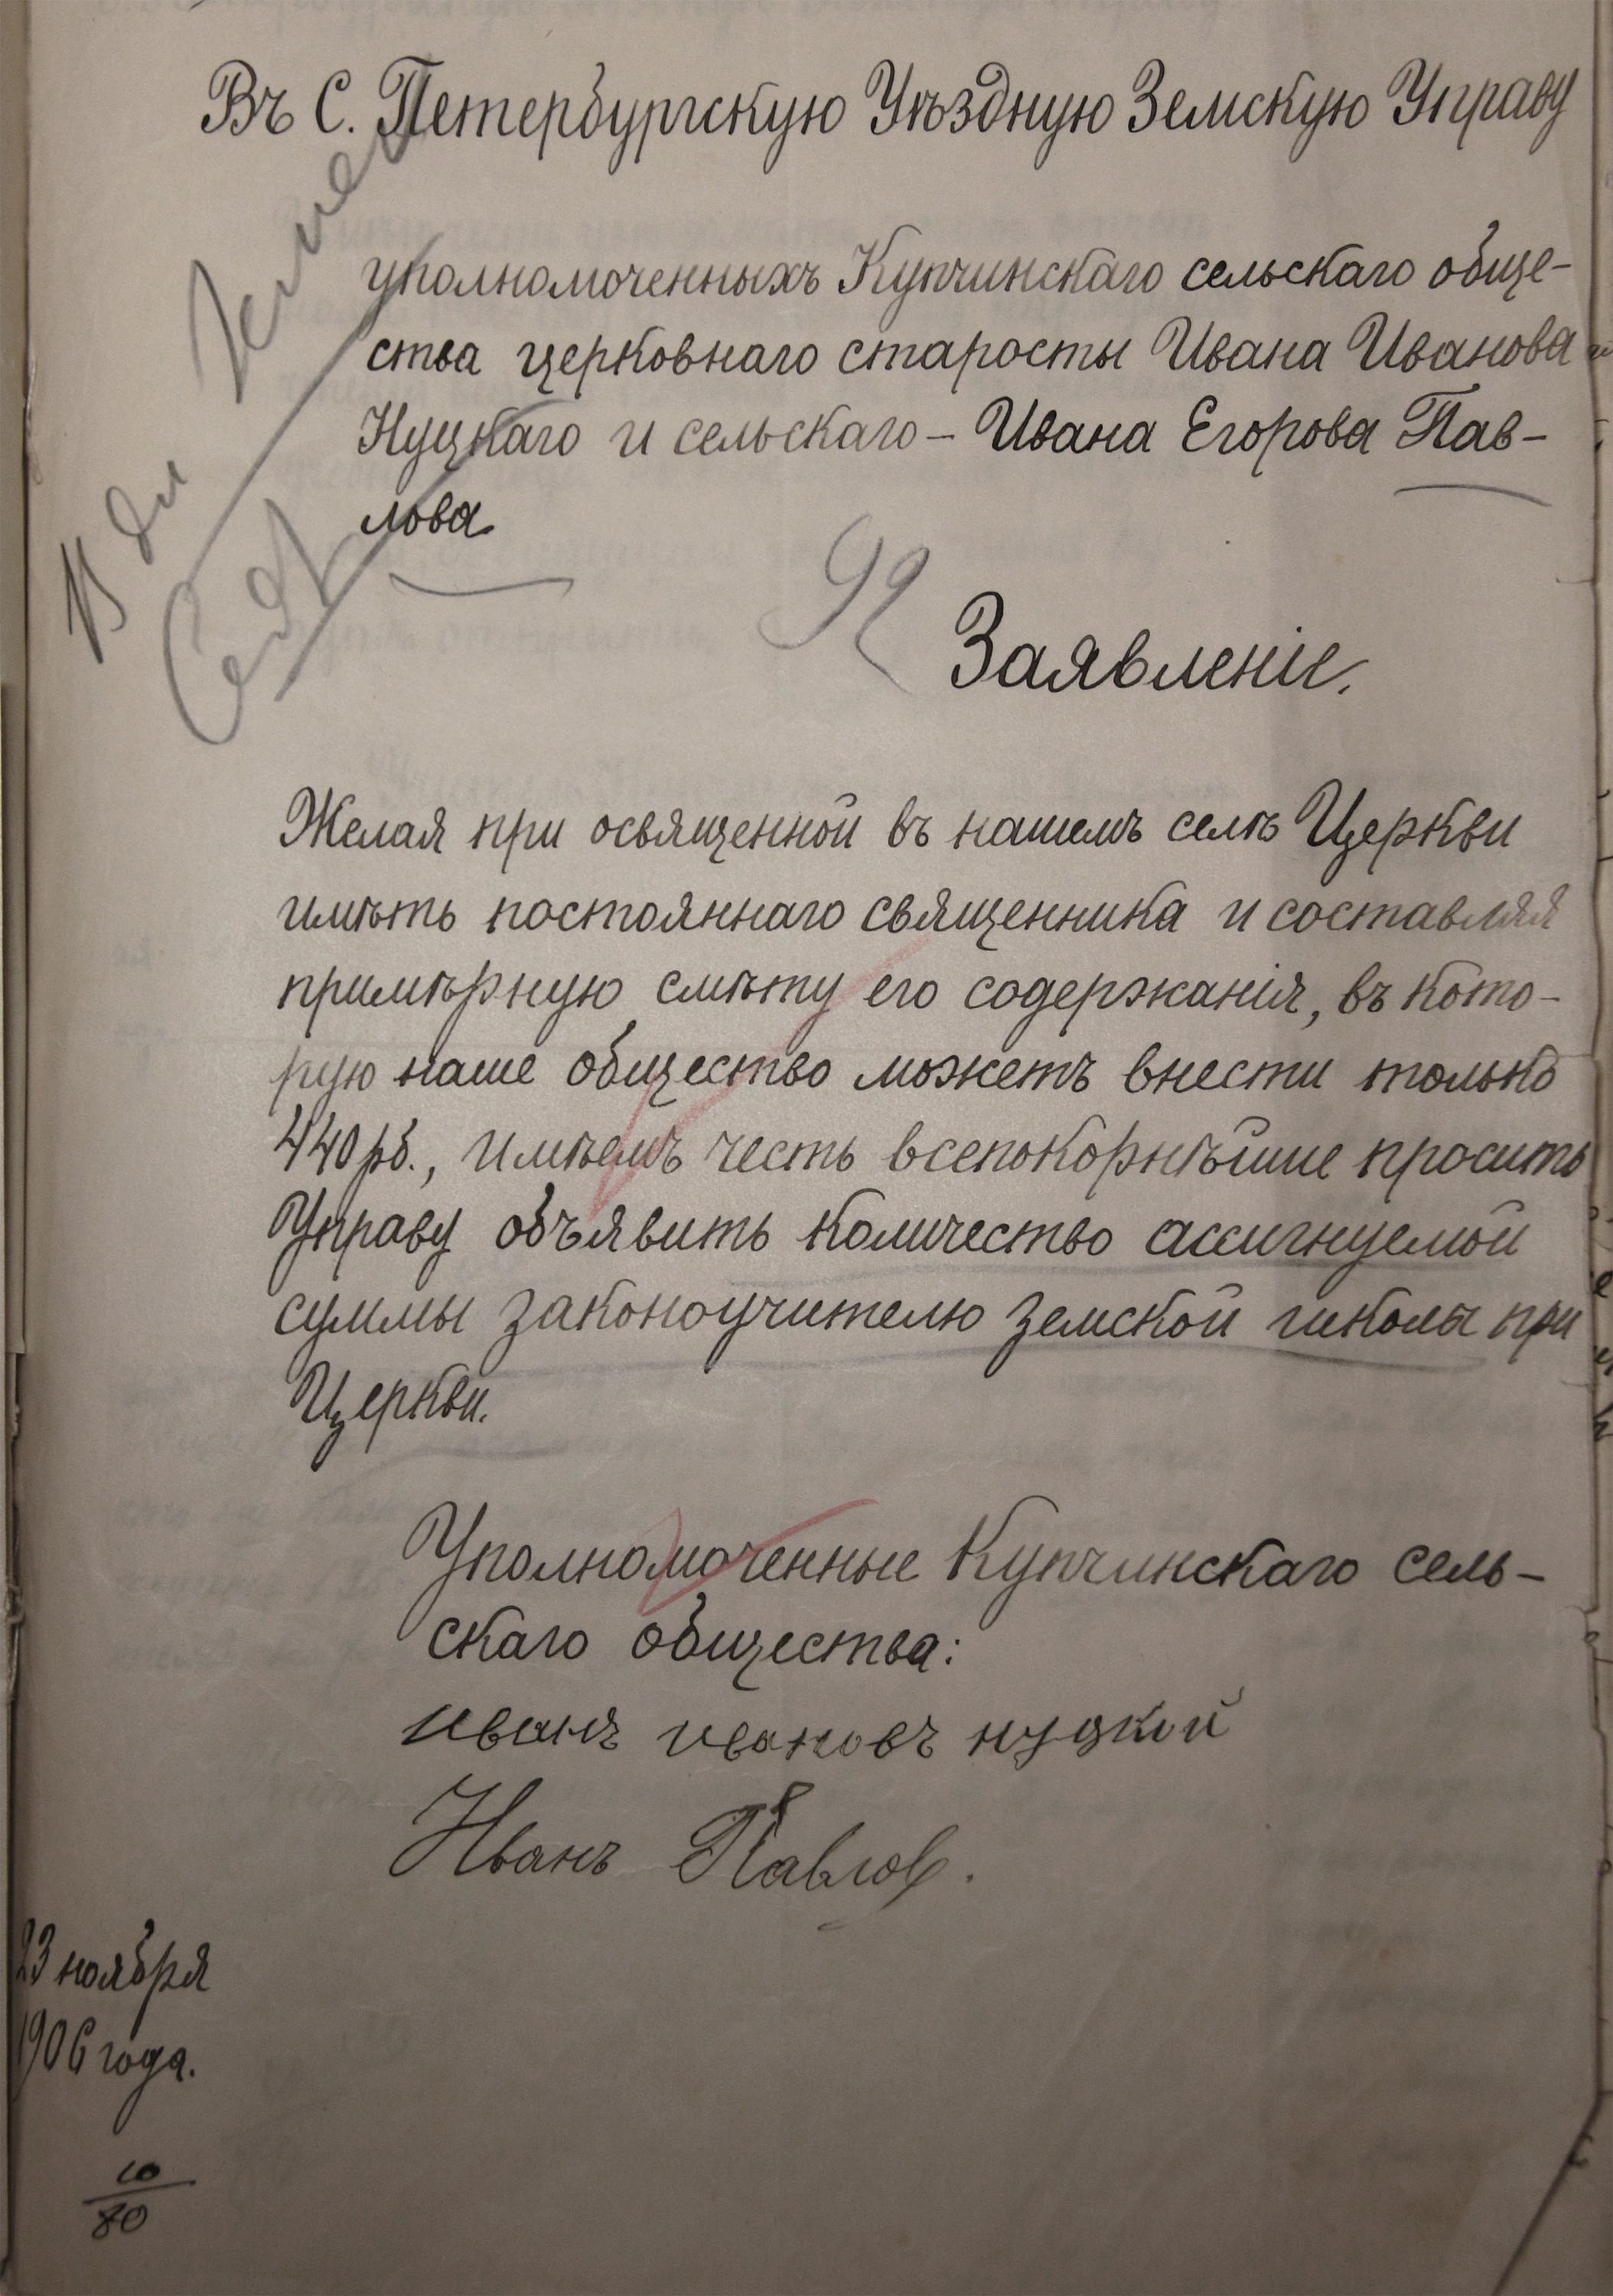 Въ С. Петербургскую Уѣздную Земскую Управу
уполномоченныхъ Купчинскаго сельскаго обще-
ства церковнаго старосты Ивана Иванова
Нуцкаго и сельскаго – Ивана Егорова Пав-
лова
92
Заявленіе.
Желая при освященной въ нашемъ селѣ Церкви
имѣть постояннаго священника и составляя
примѣрную смѣту его содержанія, въ кото-
рую наше общество можетъ внести только
440 рб., имѣемъ честь всепокорнѣйше просить
Управу объявить количество ассигнуемой
суммы законоучителю земской школы при
Церкви.
Уполномоченные Купчинскаго сель-
скаго общества:
иванъ ивановъ нуцкой
Иванъ Павлов.
23 ноября
1906 года.
10
80